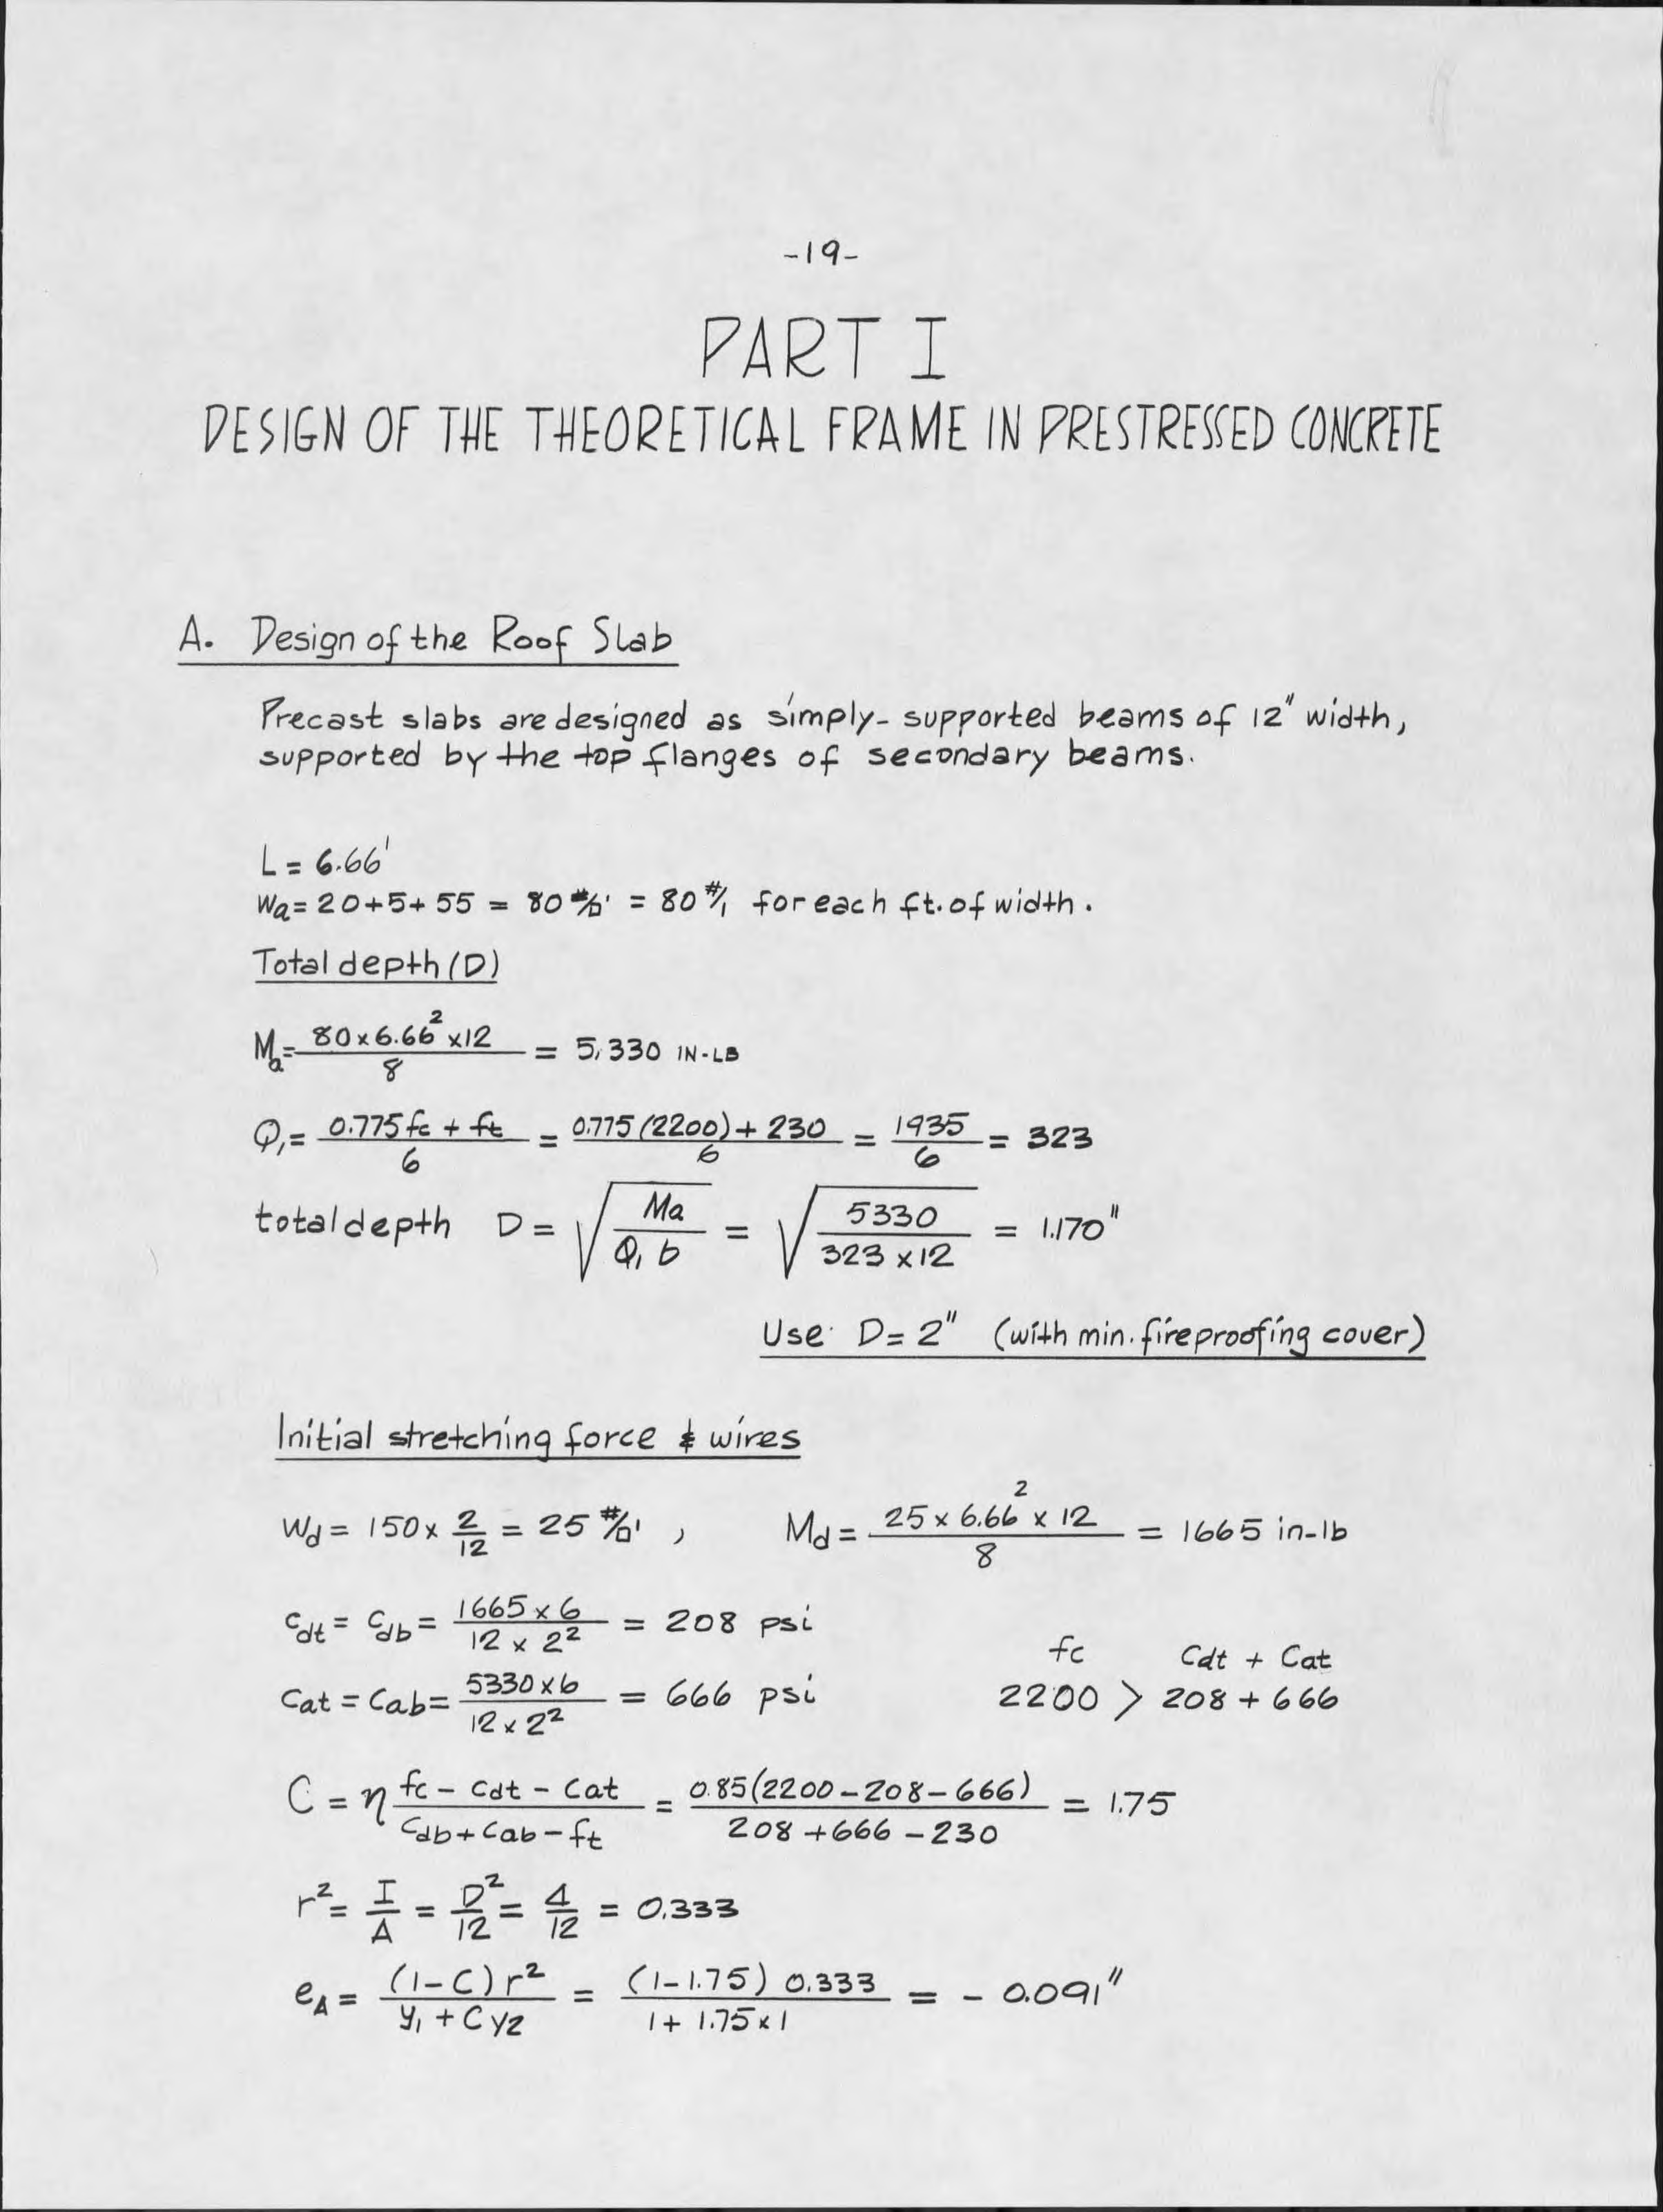 -19-
PART I
DESIGN OF THE THEORETICAL FRAME IN PRESTRESSED CONCRETE
A. Design of the Roof Slab
Precast slabs are designed as simply-supported beams of 12" width,
supported by the top flanges of secondary beams.
L = 6.66'
Wa = 20+5+55 = 80 #/□' = 80 #/' for each ft. of width.
Total depth (D)
Ma = 80 x 6.66² x 12 / 8 = 5,330 IN-LB
Q₁ = 0.775 fc + ft / 6 = 0.775 (2200) + 230 / 6 = 1935 / 6 = 323
total depth D = √(Ma / Q₁ b) = √(5330 / 323 x 12) = 1.170"
Use D = 2" (with min. fireproofing cover)
Initial stretching force & wires
Wd = 150 x 2/12 = 25 #/□' , Md = 25 x 6.66² x 12 / 8 = 1665 in-lb
Cdt = Cdb = 1665 x 6 / 12 x 2² = 208 psi
fc Cdt + Cat
Cat = Cab = 5330 x 6 / 12 x 2² = 666 psi 2200 > 208 + 666
C = η fc - Cdt - Cat / Cdb + Cab - ft = 0.85 (2200 - 208 - 666) / 208 + 666 - 230 = 1.75
r² = I/A = D²/12 = 4/12 = 0.333
eA = (1-C) r² / y₁ + C y2 = (1-1.75) 0.333 / 1 + 1.75 x 1 = - 0.091"